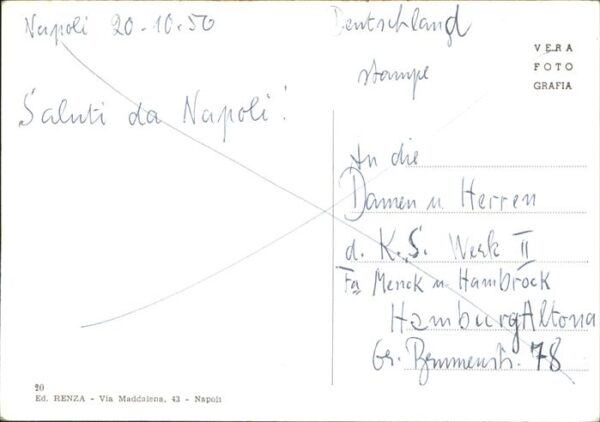 Napoli 20-10-50
Saluti da Napoli!
Deutschland
stampe
VERA
FOTO
GRAFIA
An die
Damen u. Herren
d. K.S. Werk II
Fa Menck u. Hambrock
Hamburg Altona
Gr. 78
20
Ed. RENZA - Via Maddalena, 43 - Napoli